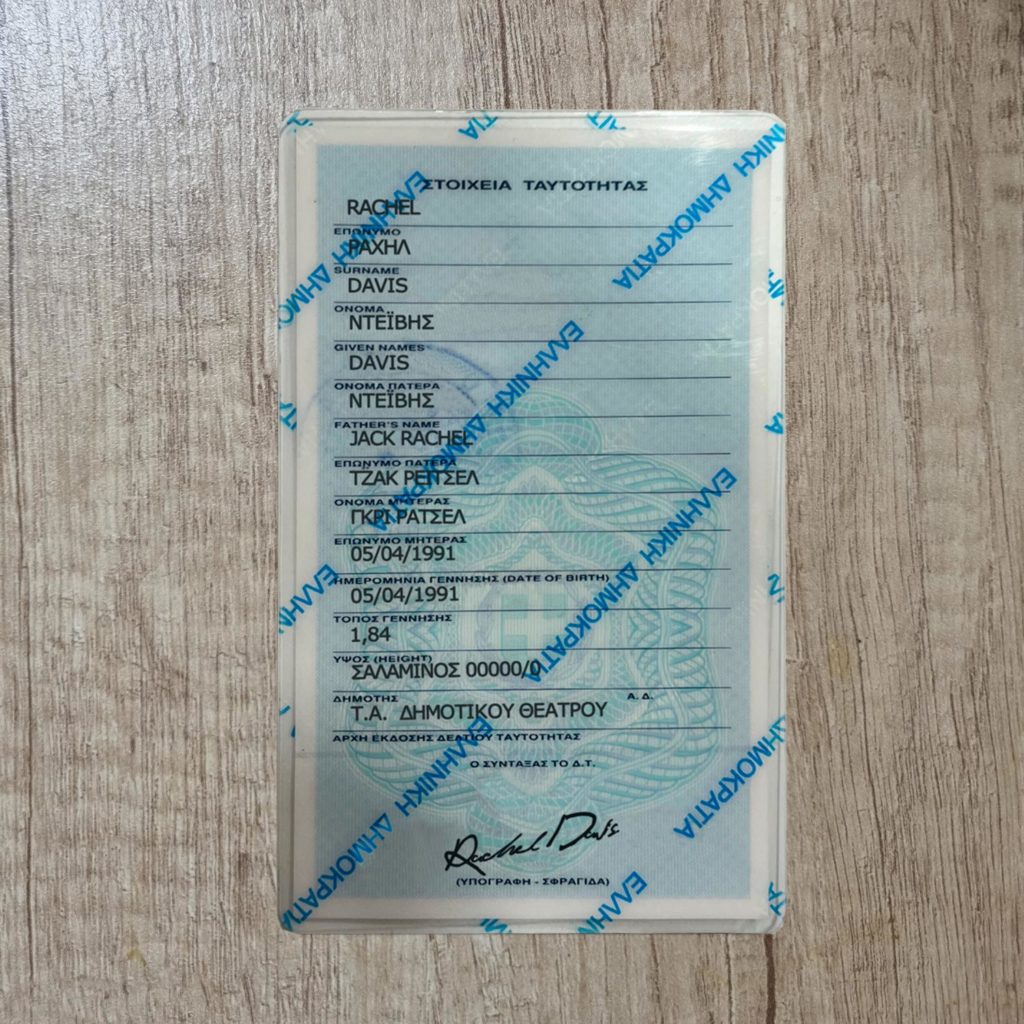 ΣΤΟΙΧΕΙΑ ΤΑΥΤΟΤΗΤΑΣ
RACHEL
ΕΠΩΝΥΜΟ
ΡΑΧΗΛ
SURNAME
DAVIS
ΟΝΟΜΑ
ΝΤΕΪΒΗΣ
GIVEN NAMES
DAVIS
ΟΝΟΜΑ ΠΑΤΕΡΑ
ΝΤΕΪΒΗΣ
FATHER'S NAME
JACK RACHEL
ΕΠΩΝΥΜΟ ΠΑΤΕΡΑ
ΤΖΑΚ ΡΕΙΤΣΕΛ
ΟΝΟΜΑ ΜΗΤΕΡΑΣ
ΓΚΡΙ ΡΑΤΣΕΛ
ΕΠΩΝΥΜΟ ΜΗΤΕΡΑΣ
05/04/1991
ΗΜΕΡΟΜΗΝΙΑ ΓΕΝΝΗΣΗΣ (DATE OF BIRTH)
05/04/1991
ΤΟΠΟΣ ΓΕΝΝΗΣΗΣ
1,84
ΥΨΟΣ (HEIGHT)
ΣΑΛΑΜΙΝΟΣ 00000/0
ΔΗΜΟΤΗΣ Α. Δ.
Τ.Α. ΔΗΜΟΤΙΚΟΥ ΘΕΑΤΡΟΥ
ΑΡΧΗ ΕΚΔΟΣΗΣ ΔΕΛΤΙΟΥ ΤΑΥΤΟΤΗΤΑΣ
Ο ΣΥΝΤΑΞΑΣ ΤΟ Δ.Τ.
Rachel Davis
(ΥΠΟΓΡΑΦΗ - ΣΦΡΑΓΙΔΑ)
ΕΛΛΗΝΙΚΗ ΔΗΜΟΚΡΑΤΙΑ
ΕΛΛΗΝΙΚΗ ΔΗΜΟΚΡΑΤΙΑ
ΕΛΛΗΝΙΚΗ ΔΗΜΟΚΡΑΤΙΑ
ΕΛΛΗΝΙΚΗ ΔΗΜΟΚΡΑΤΙΑ
ΕΛΛΗΝΙΚΗ ΔΗΜΟΚΡΑΤΙΑ